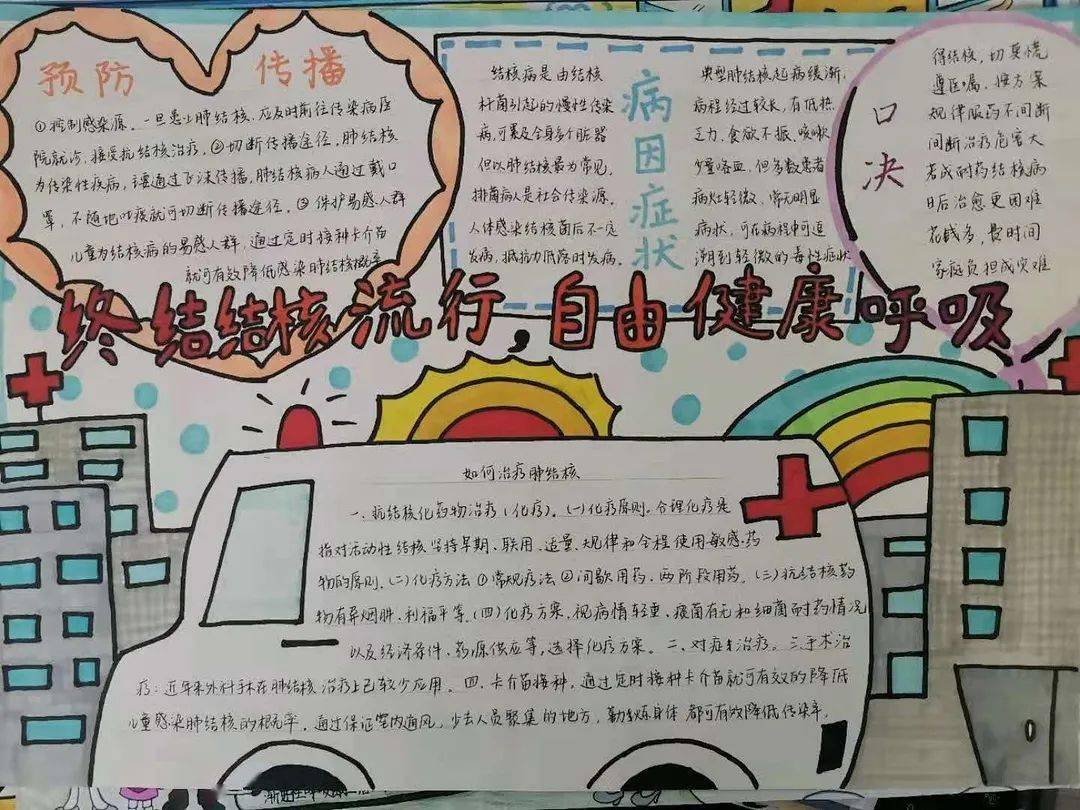 预防 传播
①控制感染源。一旦患上肺结核、应及时前往传染病医
院就诊,接受抗结核治疗。②切断传播途径。肺结核
为传染性疾病,主要通过飞沫传播,肺结核病人通过戴口
罩、不随地吐痰就可切断传播途径。③保护易感人群
儿童为结核病的易感人群,通过定时接种卡介苗
就可有效降低感染肺结核概率
结核病是由结核
杆菌引起的慢性传染
病,可累及全身多个脏器
但以肺结核最为常见,
排菌病人是社会传染源。
人体感染结核菌后不一定
发病,抵抗力低落时发病。
病因症状
典型肺结核起病缓渐,
病程经过较长,有低热
乏力、食欲不振、咳嗽
少量咯血,但多数患者
病灶轻微,常无明显
病状,可在病程中可追
溯到轻微的毒性症状
口决
得结核,切莫慌
遵医嘱,按方案
规律服药不间断
间断治疗危害大
若成耐药结核病
日后治愈更困难
花钱多,费时间
家庭负担成灾难
终结结核流行,自由健康呼吸
如何治疗肺结核
一、抗结核化药物治疗(化疗)。(一)化疗原则。合理化疗是
指对活动性结核坚持早期、联用、适量、规律和全程使用敏感药
物的原则。(二)化疗方法①常规疗法②间歇用药、两阶段用药。(三)抗结核药
物有异烟肼、利福平等。(四)化疗方案,视病情轻重、痰菌有无和细菌耐药情况
以及经济条件、药源供应等,选择化疗方案。二、对症治疗。三手术治
疗:近年来外科手术在肺结核治疗上已较少应用。四、卡介苗接种,通过定时接种卡介苗就可有效的降低
儿童感染肺结核的概率。通过保证室内通风,少去人员聚集的地方,勤锻炼身体都可有效降低传染率。